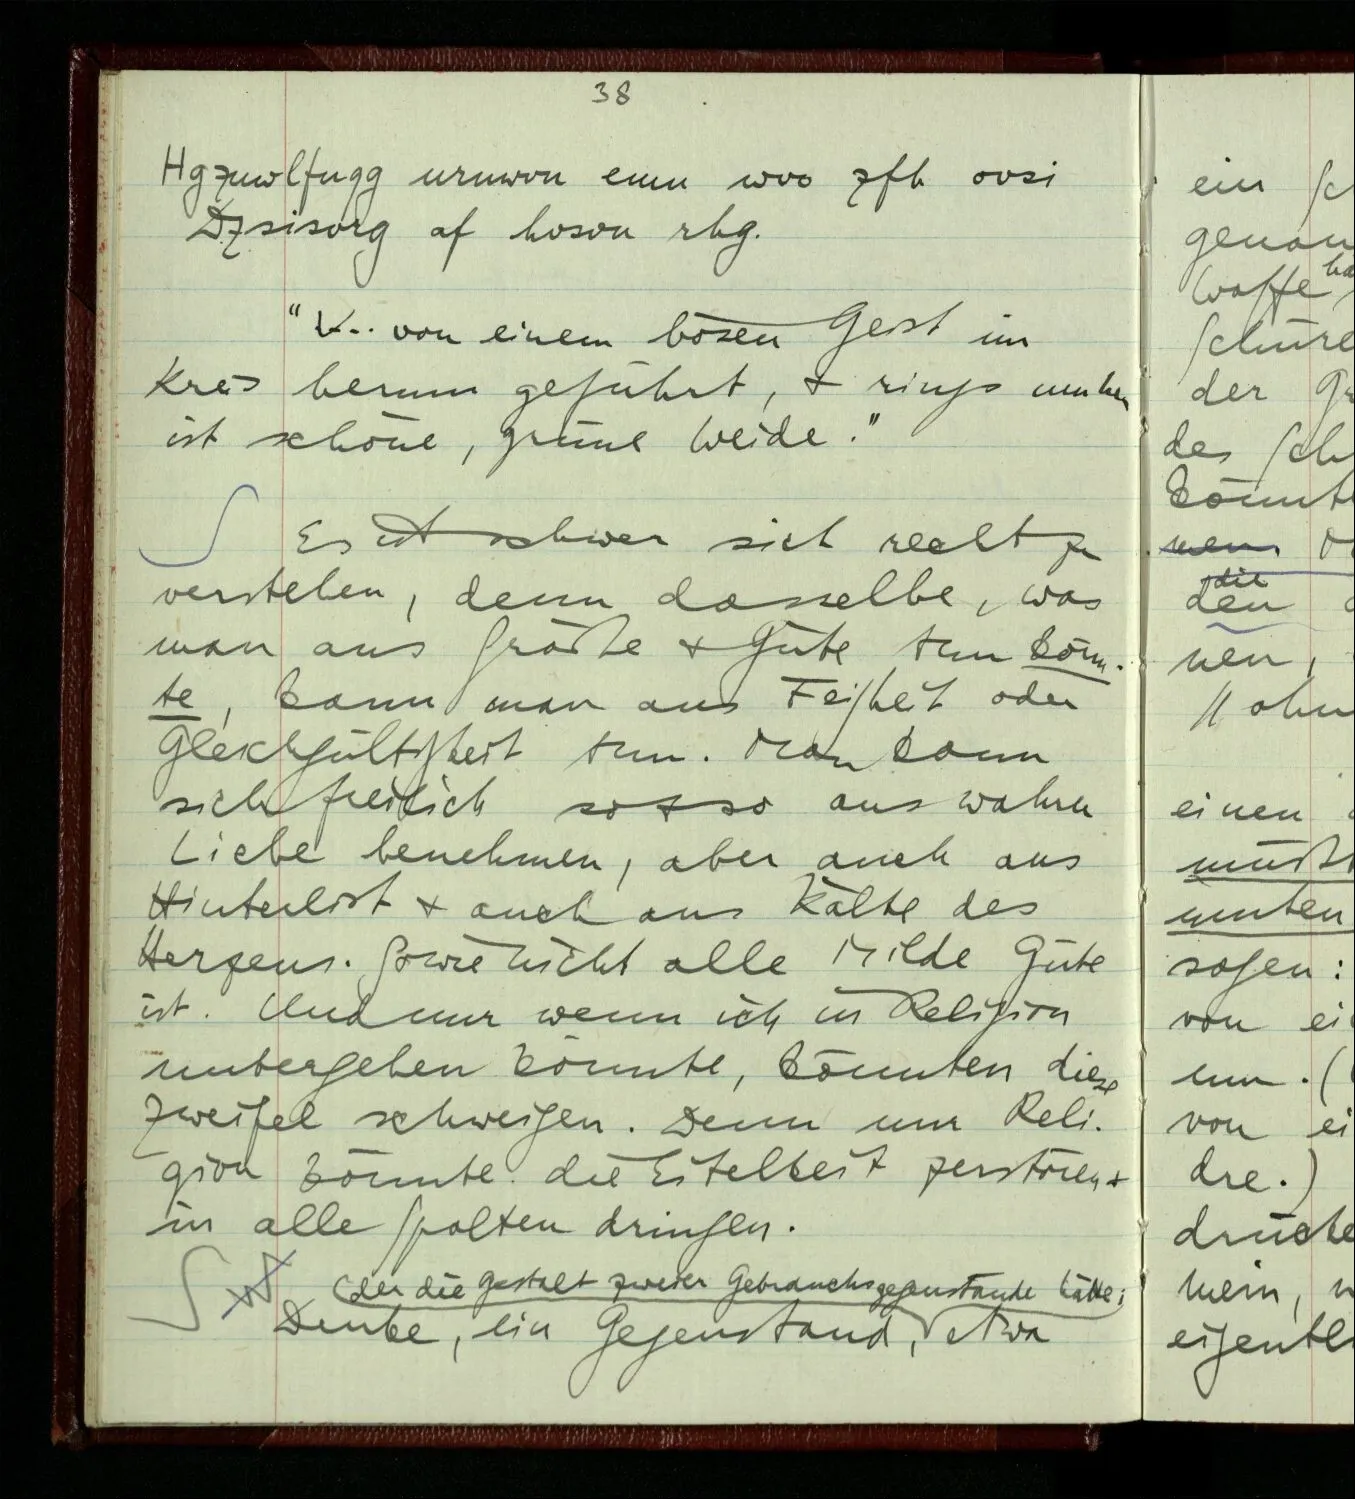 38
Hgznwlfnqg urnwvn emn wvo zfh ovsi
Dzsisvrg af hvsvn rhg.
"... von einem bösen Geist im
Kreis herum geführt, & rings umher
ist schöne, grüne Weide."
∫ Es ist schwer sich recht zu
verstehen, denn dasselbe, was
man aus Größe & Güte tun könn-
te, kann man aus Feigheit oder
Gleichgültigkeit tun. Man kann
sich freilich so & so aus wahrer
Liebe benehmen, aber auch aus
Hinterlist & auch aus Kälte des
Herzens. Sowie nicht alle Milde Güte
ist. Und nur wenn ich in Religion
untergehen könnte, könnten diese
Zweifel schweigen. Denn nur Reli-
gion könnte die Eitelkeit zerstören &
in alle Spalten dringen.
∫ (der die Gestalt zweier Gebrauchsgegenstände hätte;
Denke, ein Gegenstand, etwa
ein
genau
Waffe
der
des Sch
könnte
die
den
nen,
// ohn
einen
müßt
unten
sagen:
von ei
um. (
von ei
dre.)
drücke
mein,
eigentl